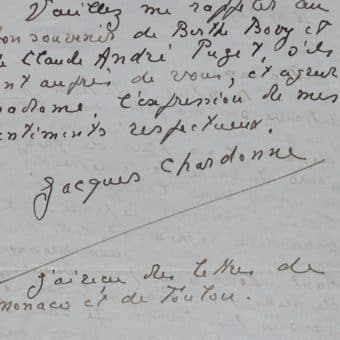 Veuillez me rappeler au
on souvenir de Berthe Bovy et
e Claude André Puget, s'ils
nt auprès de vous, et agréer
adame, l'expression de mes
entiments respectueux.
Jacques Chardonne
J'ai reçu des lettres de
monaco et de Toulon.